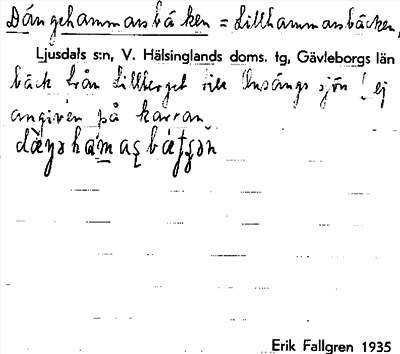 Dångehammarsbäcken = Lillhammarsbäcken,
Ljusdals s:n, V. Hälsinglands doms. tg, Gävleborgs län
bäck från Lillberget till sjön ! ej
angiven på kartan
Erik Fallgren 1935